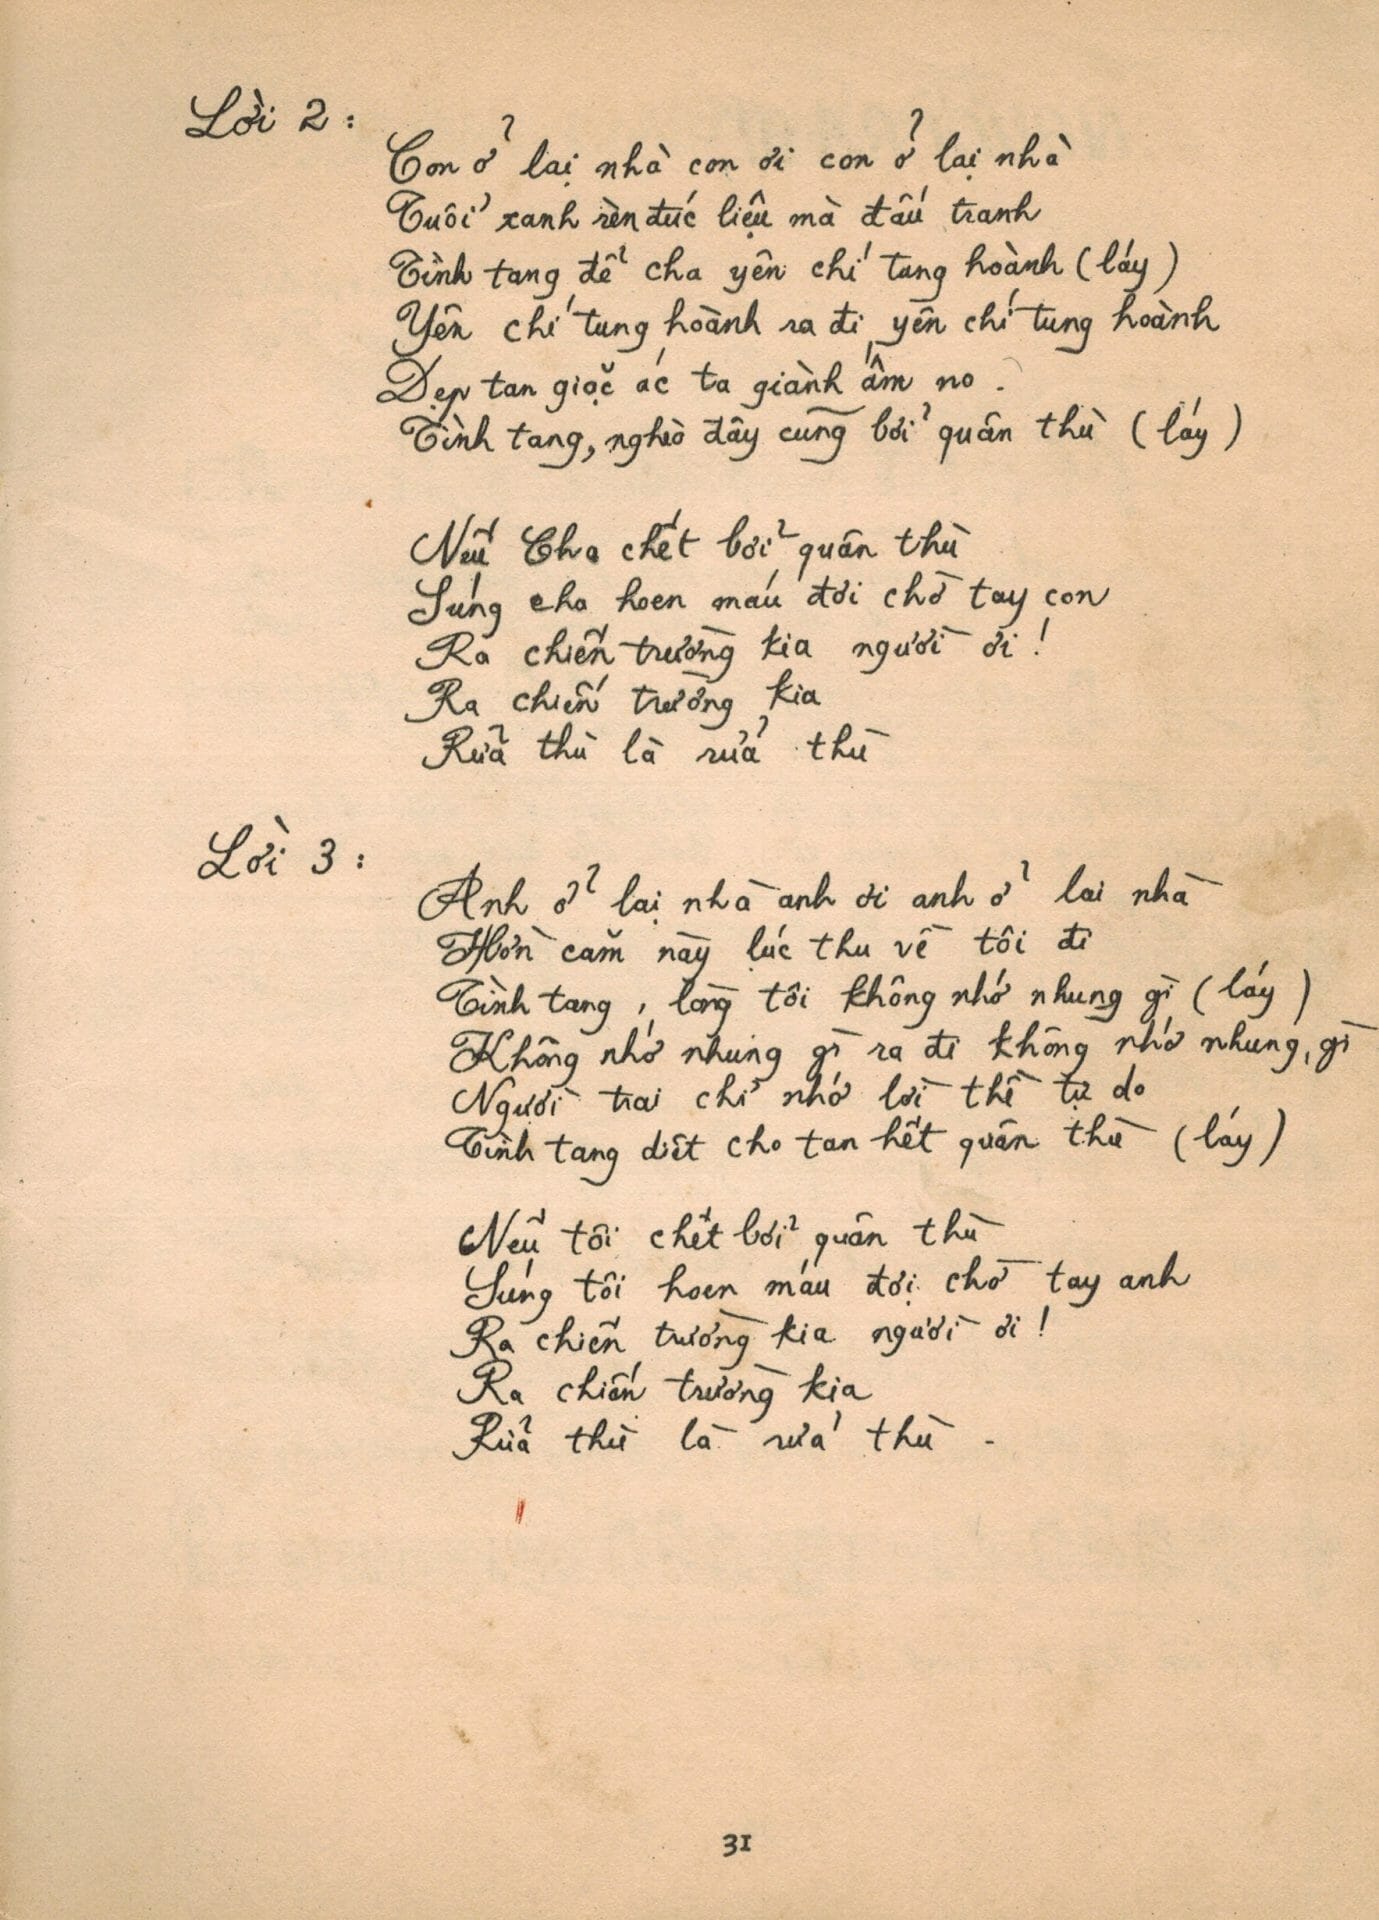 Lời 2 :
Con ở lại nhà con ơi con ở lại nhà
Tuổi xanh rèn đúc liệu mà đấu tranh
Tình tang để cha yên chí tang hoành (láy)
Yên chí tung hoành ra đi yên chí tung hoành
Dẹp tan giặc ác ta giành ấm no .
Tình tang, nghèo đây cũng bởi quân thù (láy)
Nếu Cha chết bởi quân thù
Súng cha hoen máu đơi chờ tay con
Ra chiến trường kia người ơi !
Ra chiến trường kia
Rửa thù là rửa thù
Lời 3 :
Anh ở lại nhà anh ơi anh ở lai nhà
Hờn căm này lúc thu về tôi đi
Tình tang , lòng tôi không nhớ nhung gì (láy)
Không nhớ nhung gì ra đi không nhớ nhung, gì
Người trai chỉ nhớ lời thề tự do
Tình tang diêt cho tan hết quân thù (láy)
Nếu tôi chết bởi quân thù
Súng tôi hoen máu đợi chờ tay anh
Ra chiến trường kia người ơi !
Ra chiến trường kia
Rửa thù là rửa thù .
31